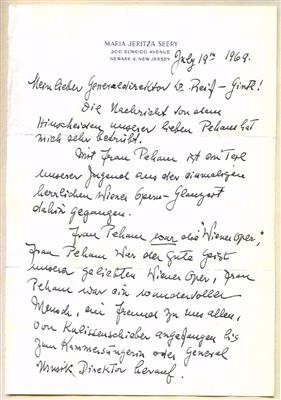 MARIA JERITZA SEERY
200 ELWOOD AVENUE
NEWARK 4, NEW JERSEY
July 19th 1969.
Mein lieber Generaldirektor Dr. Reif-Gintl!
Die Nachricht von dem
Hinscheiden unserer lieben Peham hat
mich sehr betrübt.
Mit Frau Peham ist ein Teil
unserer Jugend aus der einmaligen
herrlichen Wiener Opern-Glanzzeit
dahin gegangen.
Frau Peham war die "Wiener Oper,"
Frau Peham war der Gute Geist
unserer geliebten Wiener Oper, Frau
Peham war ein wundervoller
Mensch, ein Freund zu uns allen,
von Kulissenschieber angefangen bis
zum Kammersängerin oder General
Musik Direktor herauf.